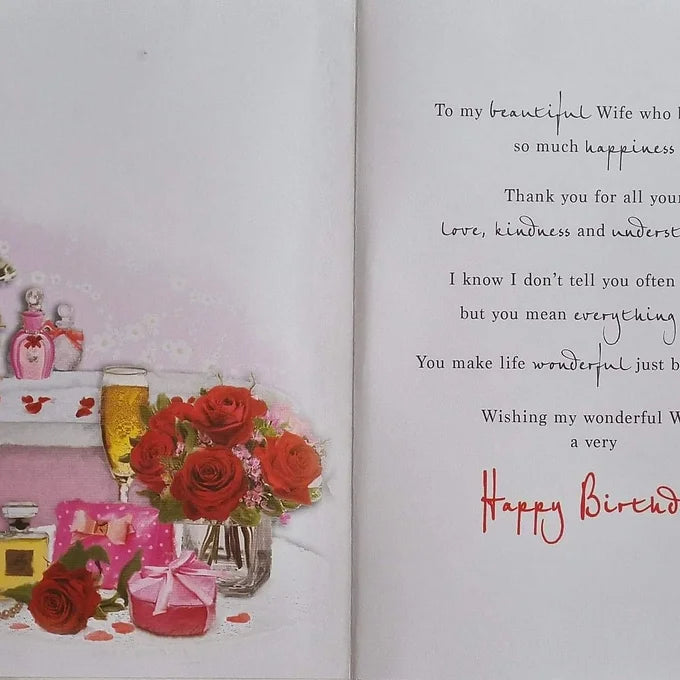 To my beautiful Wife who
so much happiness
Thank you for all your
love, kindness and
I know I don't tell you often
but you mean everything
You make life wonderful just
Wishing my wonderful
a very
Happy